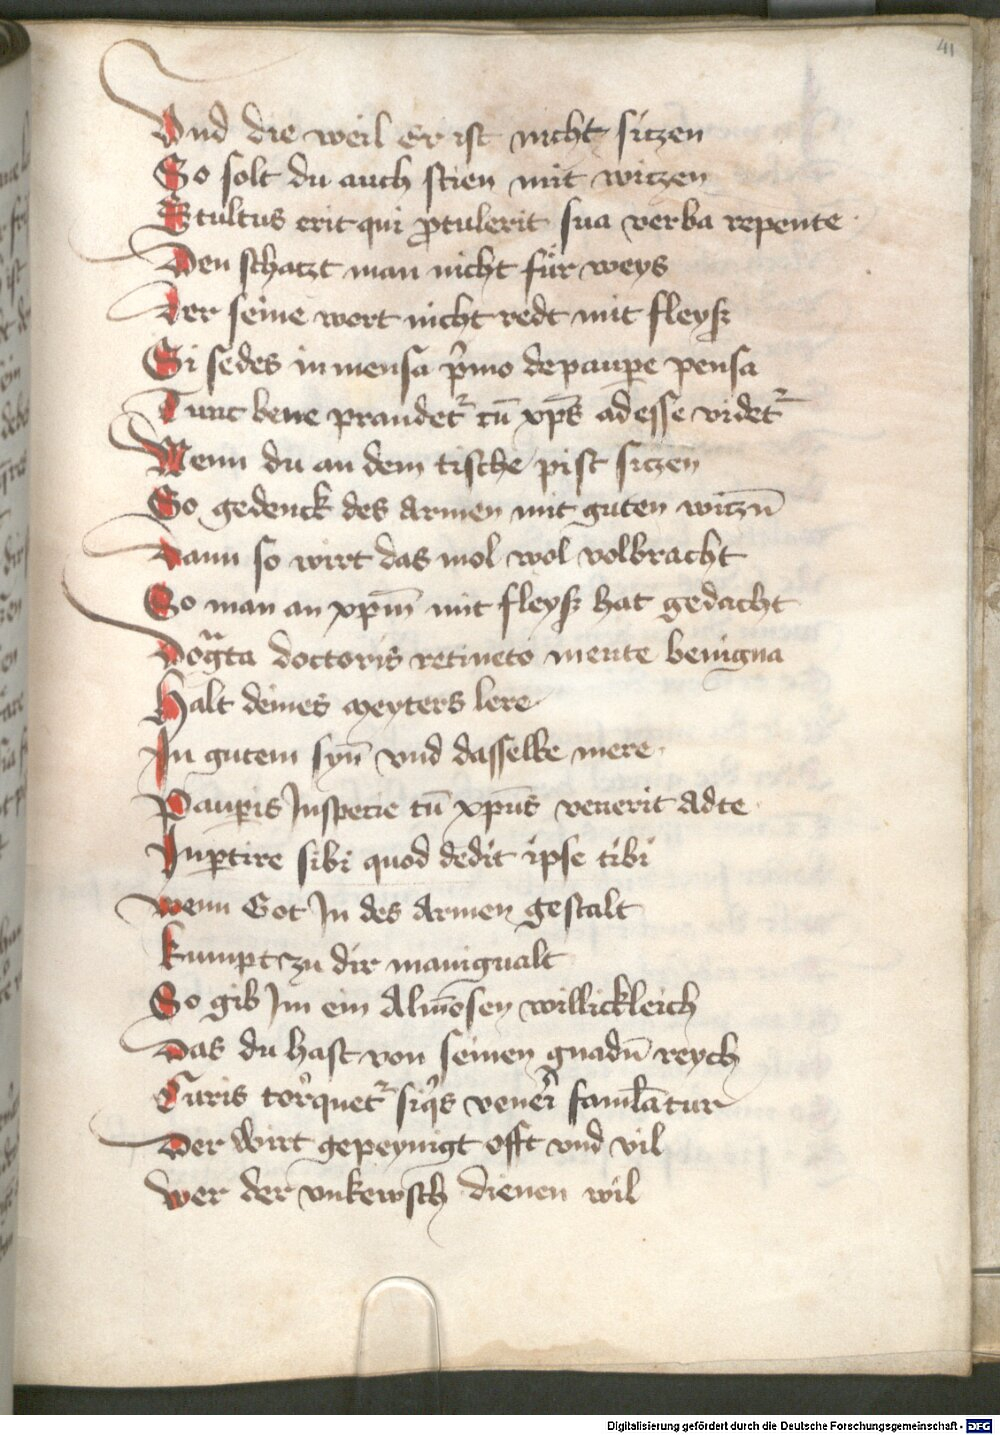 41
Vnd die weil Er ist nicht siczen
So solt du auch stien mit wiczen
Stultus erit qui ꝓtulerit sua verba repente
Den schatzt man nicht für weys
Der seine wort nicht redt mit fleyß
Si sedes in mensa pͥmo de pauꝑe pensa
Tunc bene prandetᷣ cū xp̄s adesse videtᷣ
Wenn du an dem tische pist siczen
So gedenck des Armen mit guten wiczn̄
Dann so wirt das mol wol volbracht
So man an xpm̄ mit fleyß hat gedacht
Doḡta doctoris retineto mente benigna
Halt deines meysters lere
In gutem syn̄ vnd dasselbe mere
Pauꝑis Inspecie cū xpūs venerit ad te
Inꝑtire sibi quod dedit ipse tibi
wenn Got In des Armen gestalt
kumpt zu dir manigualt
So gib Im ein Alm̄osen willickleich
Das du hast von seinen gnadn̄ reych
Curis torquetᷣ siqͥs venēri famlātur
Der wirt gepeynigt offt vnd vil
wer der vnkewsch dienen wil
Digitalisierung gefördert durch die Deutsche Forschungsgemeinschaft - DFG